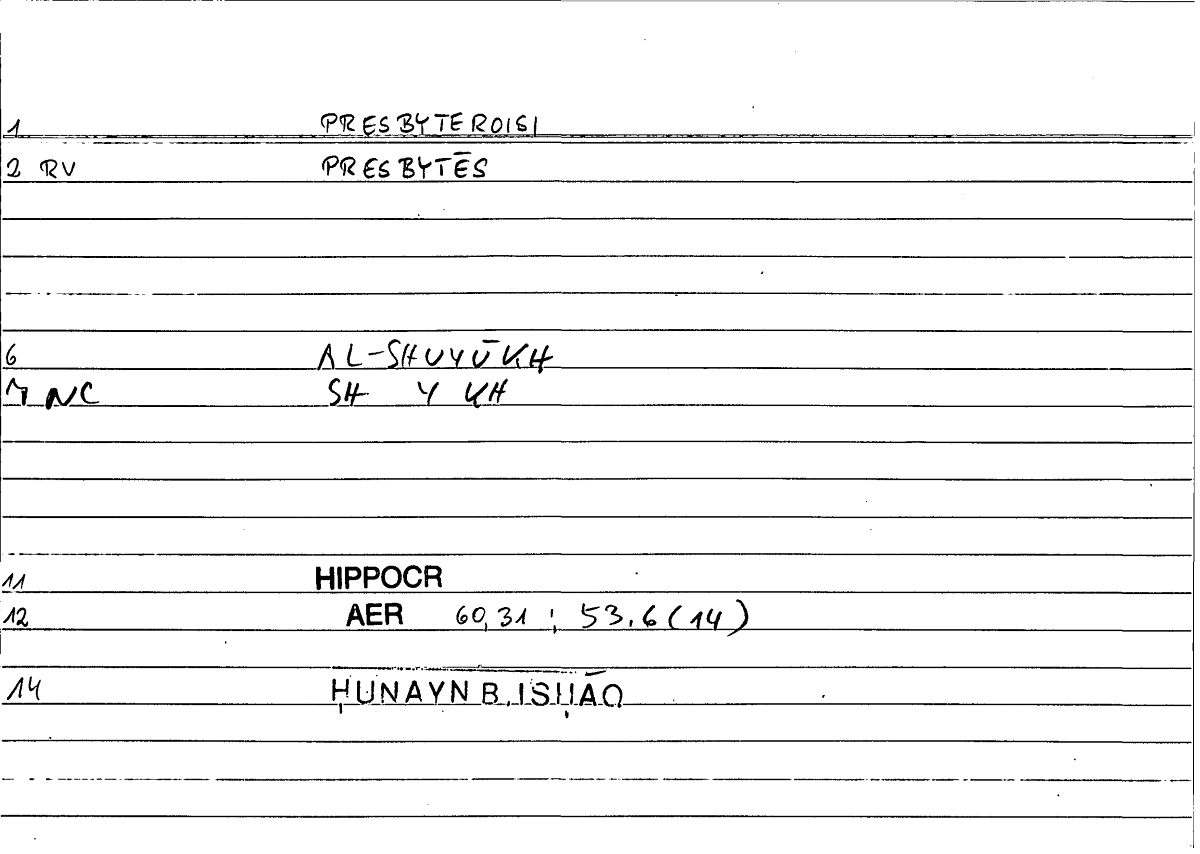 1 PRESBYTEROISI
2 RV PRESBYTĒS
6 AL-SHUYŪKH
7 NC SH Y KH
11 HIPPOCR
12 AER 60,31 ; 53.6 (14)
14 ḤUNAYN B. ISḤĀQ